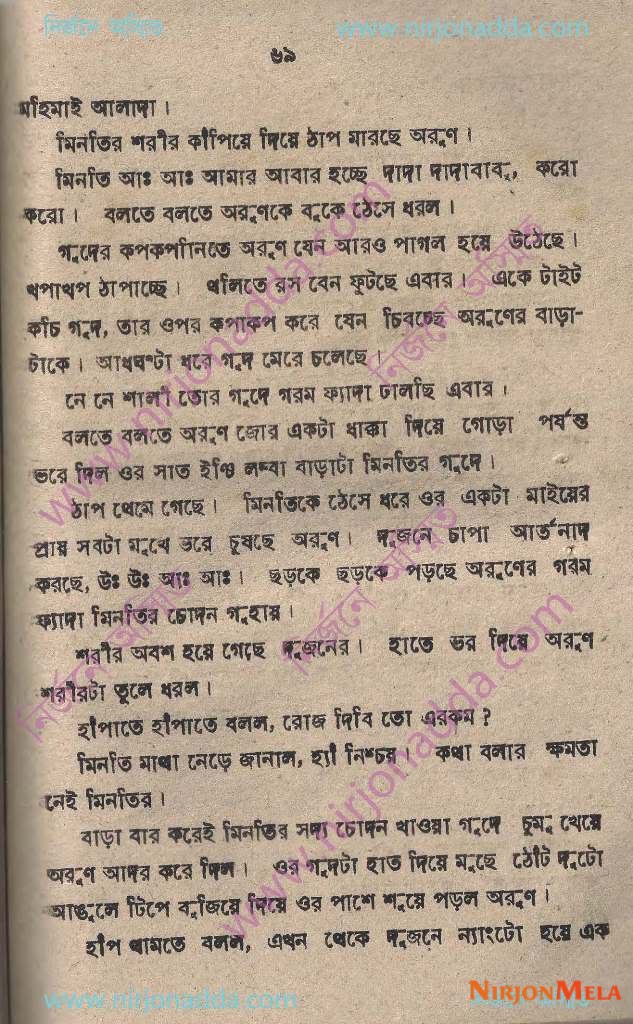 নির্জনে অসিমত
www.nirjonadda.com
৬৯
মহিমাই আলাদা।
মিনতির শরীর কাঁপিয়ে দিয়ে ঠাপ মারছে অরুণ।
মিনতি আঃ আঃ আমার আবার হচ্ছে দাদা দাদাবাবু, করো
করো। বলতে বলতে অরুণকে বুকে ঠেসে ধরল।
গুদের কপকপানিতে অরুণ যেন আরও পাগল হয়ে উঠেছে।
থপাথপ ঠাপাচ্ছে। থলিতে রস যেন ফুটছে এবার। একে টাইট
কচি গুদ, তার ওপর কপাকপ করে যেন চিবচ্ছে অরুণের বাড়া-
টাকে। আধঘণ্টা ধরে গুদ মেরে চলেছে।
নে নে শালী তোর গুদে গরম ফ্যাদা ঢালছি এবার।
বলতে বলতে অরুণ জোর একটা ধাক্কা দিয়ে গোড়া পর্যন্ত
ভরে দিল ওর সাত ইঞ্চি লম্বা বাড়াটা মিনতির গুদে।
ঠাপ থেমে গেছে। মিনতিকে ঠেসে ধরে ওর একটা মাইয়ের
প্রায় সবটা মুখে ভরে চুষছে অরুণ। দুজনে চাপা আর্তনাদ
করছে, উঃ উঃ আঃ আঃ। ছড়কে ছড়কে পড়ছে অরুণের গরম
ফ্যাদা মিনতির চোদন গুহায়।
শরীর অবশ হয়ে গেছে দুজনের। হাতে ভর দিয়ে অরুণ
শরীরটা তুলে ধরল।
হাঁপাতে হাঁপাতে বলল, রোজ দিবি তো এরকম?
মিনতি মাথা নেড়ে জানাল, হ্যাঁ নিশ্চয়। কথা বলার ক্ষমতা
নেই মিনতির।
বাড়া বার করেই মিনতির সদ্য চোদন খাওয়া গুদে চুমু খেয়ে
অরুণ আদর করে দিল। ওর গুদটা হাত দিয়ে মুছে ঠোঁট দুটো
আঙুলে টিপে বুজিয়ে দিয়ে ওর পাশে শুয়ে পড়ল অরুণ।
হাঁপ থামতে বলল, এখন থেকে দুজনে ন্যাংটো হয়ে এক
NIRJONMELA
www.nirjonadda.com